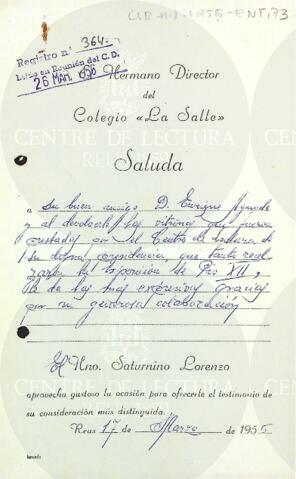 CLR.11.1.1956-ENT,73
Registro n.º 364
Leído en Reunión del C.D.
26 MAR. 1956
El Hermano Director
del
Colegio «La Salle»
CENTRE DE LECTURA
REUS 1859
Saluda
a Su buen amigo D. Enrique Aguadé
y al devolverle las vitrinas que fueron
prestadas por el Centro de Lectura de
su digna presidencia, que tanto real-
zaron la Exposición de Pío XII,
le da las más expresivas gracias
por su generosa colaboración
El Hno. Saturnino Lorenzo
aprovecha gustoso la ocasión para ofrecerle el testimonio de
su consideración más distinguida.
Reus 17 de Marzo de 1956